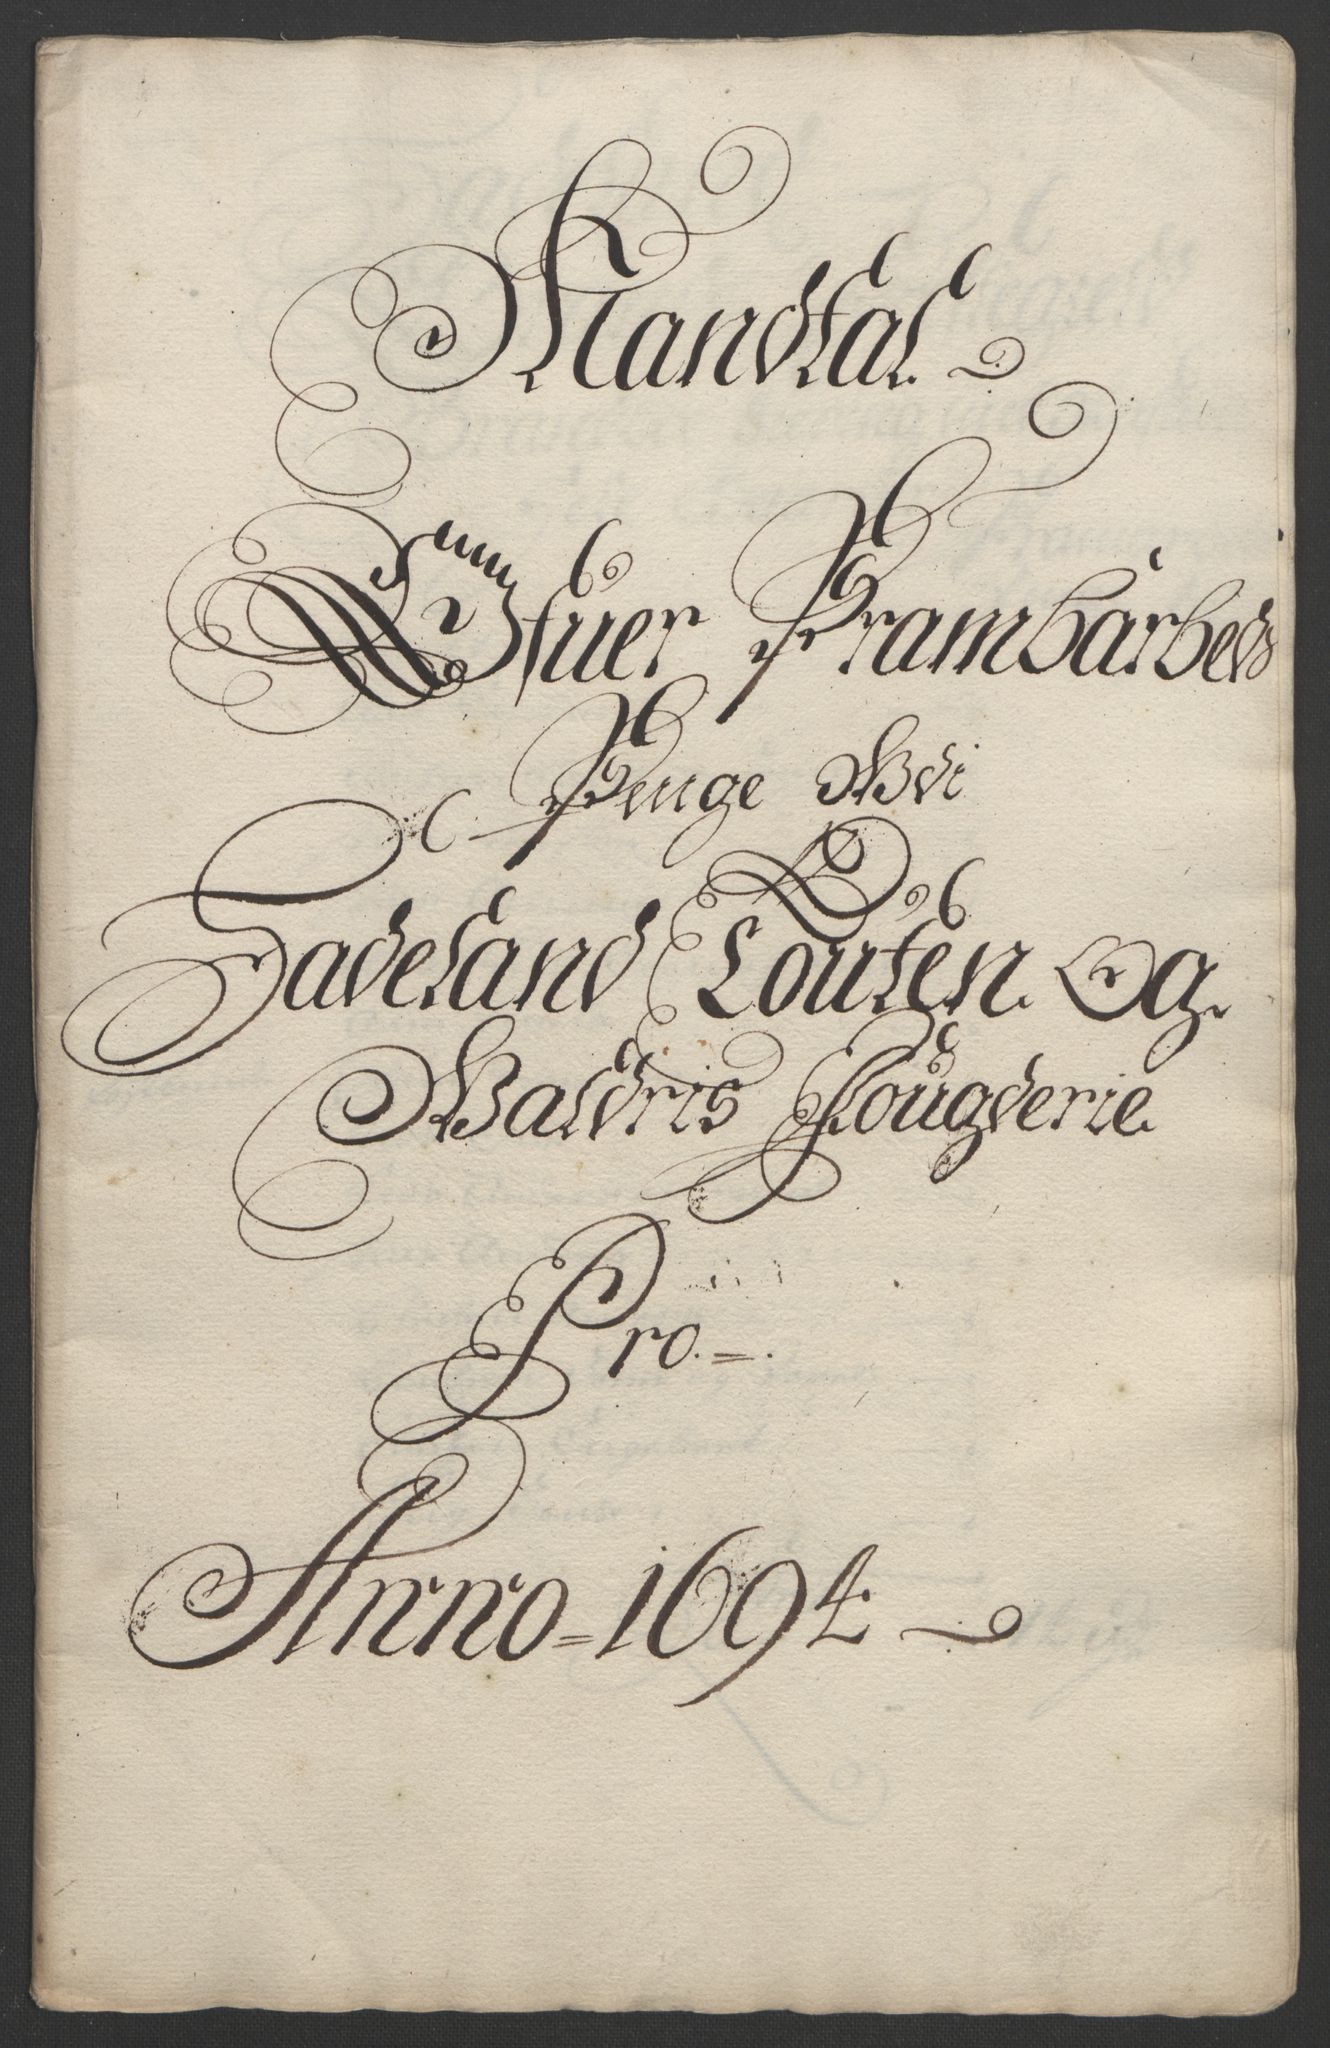 Mandtal
Ofuer Prambarbeds
Penge Udi
Hadeland Toten Og
Waldris Fougderie
Pro
Anno 1694